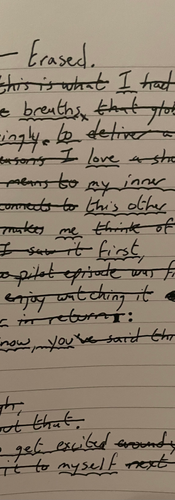 - Erased.
this is what I had
e breaths, that glo
ingly. to deliver a
easons I love a sho
means to my inner
connects to this other
makes me think of
I saw it first,
pilot episode was f
enjoy watching it
in return:
now, you've said thi
gh,
out that.
get excited around y
it to myself next